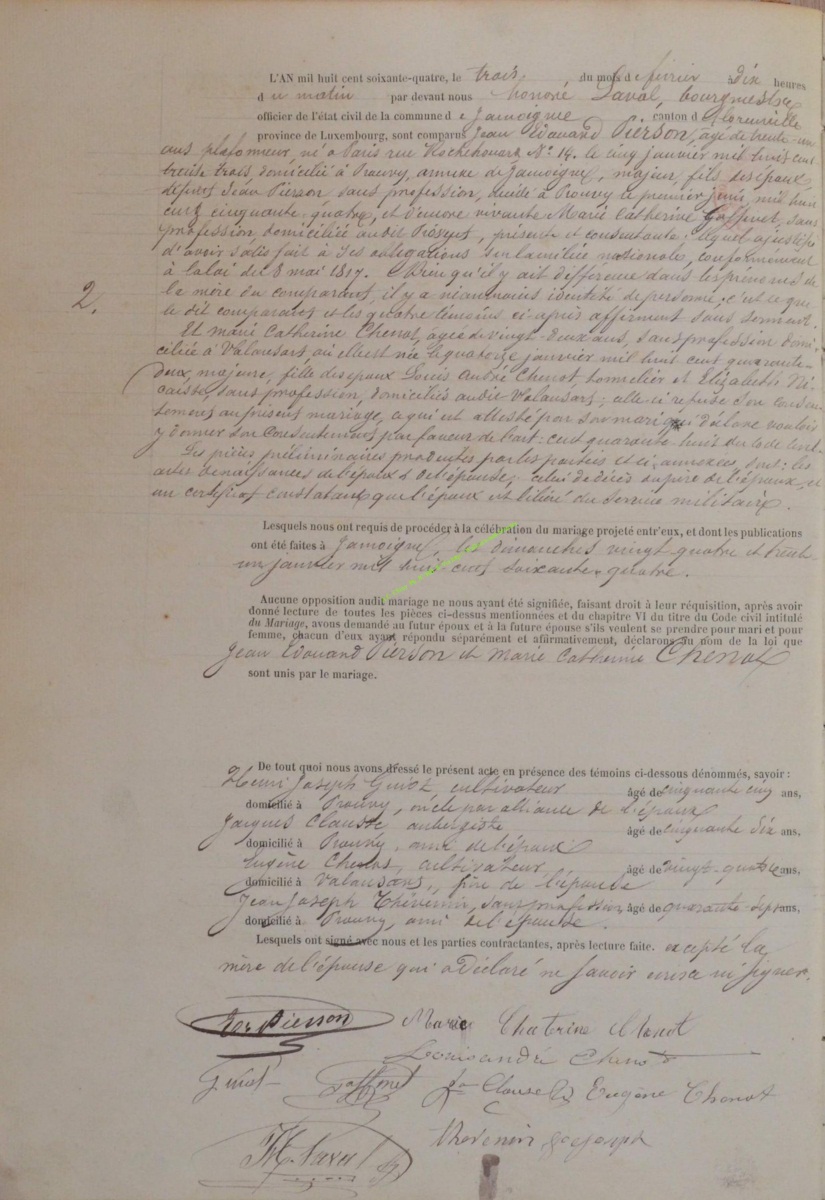 L'AN mil huit cent soixante-quatre, le trois, du mois de février à dix heures
du matin par devant nous honoré Laval, bourgmestre
officier de l'état civil de la commune de Jamoigne canton de Florenville
province de Luxembourg, sont comparus Jean Edouard Pierson, âgé de trente-un
ans plafonneur, né à Paris rue Rochechouart N° 14. le cinq janvier mil huit cent
trente trois, domicilié à Prouvy, annexe de Jamoigne, majeur, fils des époux
défunt Jean Pierson sans profession, décédé à Prouvy le premier juin mil huit
cent cinquante-quatre, et d'encore vivante Marie Catherine Goffinet, sans
profession domiciliée audit Prouvy, présente et consentante; lequel a justifié
d'avoir satisfait à ses obligations sur la milice nationale, conformément
à la loi du 8 mai 1817. Bien qu'il y ait différence dans les prénoms de
2.
la mère du comparant, il y a néanmoins identité de personne; c'est ce que
le dit comparant et les quatre témoins ci-après affirment sous serment.
Et Marie Catherine Chenot, âgée de vingt-deux ans, sans profession domi-
ciliée à Valansart, où elle est née le quatorze janvier mil huit cent quarante-
deux, majeure, fille des époux Louis André Chenot, tonnelier et Elizabeth Ni-
caisse, sans profession, domiciliés audit Valansart; celle-ci refuse son consen-
tement au présent mariage, ce qui est attesté par son mari qui déclare vouloir
y donner son consentement par faveur de l'art: cent quarante-huit du code civil.
Les pièces préliminaires produites par les parties et ci-annexées, sont: les
actes de naissances de l'époux & de l'épouse, celui de décès du père de l'époux, et
un certificat constatant que l'époux est libéré du service militaire.
Lesquels nous ont requis de procéder à la célébration du mariage projeté entr'eux, et dont les publications
ont été faites à Jamoigne, les dimanches vingt quatre et trente
un janvier mil huit cent soixante-quatre.
Aucune opposition audit mariage ne nous ayant été signifiée, faisant droit à leur réquisition, après avoir
donné lecture de toutes les pièces ci-dessus mentionnées et du chapitre VI du titre du Code civil intitulé
du Mariage, avons demandé au futur époux et à la future épouse s'ils veulent se prendre pour mari et pour
femme, chacun d'eux ayant répondu séparément et affirmativement, déclarons au nom de la loi que
Jean Edouard Pierson et Marie Catherine Chenot
sont unis par le mariage.
De tout quoi nous avons dressé le présent acte en présence des témoins ci-dessous dénommés, savoir :
Henri Joseph Guiot, cultivateur âgé de cinquante cinq ans,
domicilié à Prouvy, oncle par alliance de l'époux
Jacques Clausse aubergiste âgé de cinquante dix ans,
domicilié à Prouvy, ami de l'époux
Eugène Chenot, cultivateur, âgé de vingt-quatre ans,
domicilié à Valansart, frère de l'épouse
Jean Joseph Thévenin, sans profession, âgé de quarante-sept ans,
domicilié à Prouvy, ami de l'épouse.
Lesquels ont signé avec nous et les parties contractantes, après lecture faite. excepté la
mère de l'épouse qui a déclaré ne savoir écrire ni signer.
Pierson Marie Chatrine Chenot
Louis andré Chenot
Guiot Goffinet Clausse Eugène Chenot
Thevenin Joseph
H. Laval